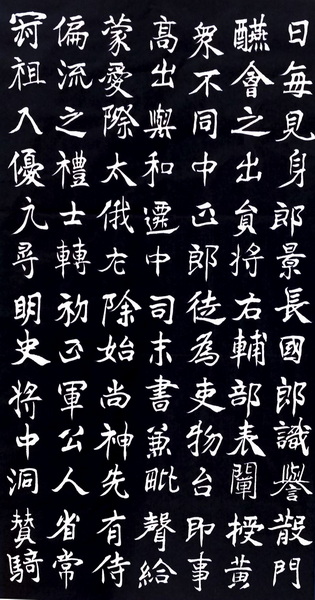 日每見身郎景長國郎識譽散門
醼會之出貟将右輔部表闡授黄
衆不同中正郎徒為吏物台即事
高出與和遷中司末書兼毗聲給
蒙愛際太俄除始尚神先有侍
偏流之禮士轉初正軍公人省常
祖入優九尋明史将中洞贊騎